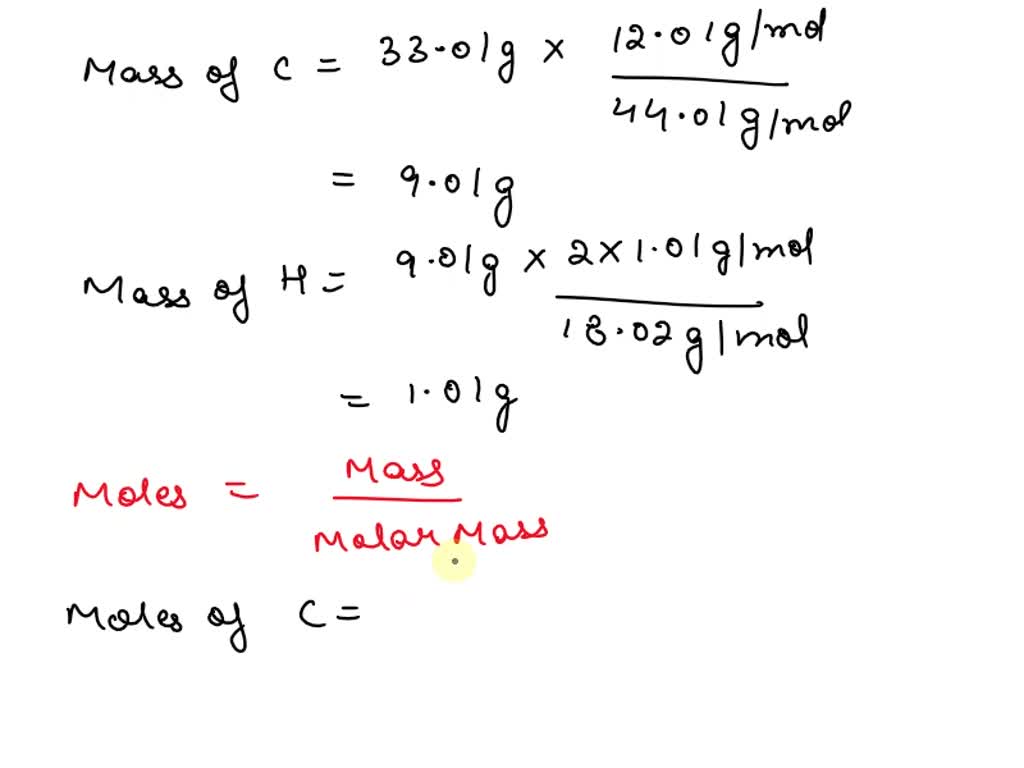 Mass of C = 33.01g × 12.01g/mol
44.01g/mol
= 9.01g
Mass of H = 9.01g × 2×1.01g/mol
18.02g/mol
= 1.01g
Moles = Mass
Molar Mass
Moles of C =